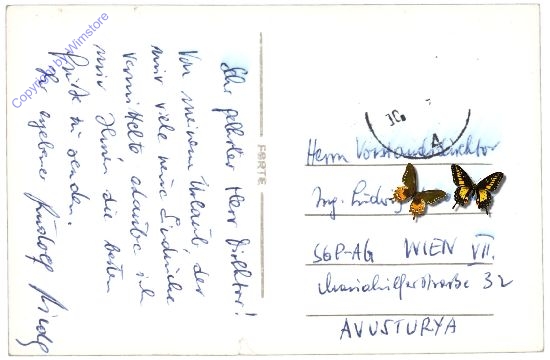 Copyright by Wimstore
Sehr geehrter Herr Direktor!
Von meinem Urlaub, der
mir viele neue Eindrücke
vermittelte erlaube ich
mir Ihnen die besten
Grüße zu senden.
Ihr ergebener Rudolf
FORTE
Herrn Vorstandsdirektor
Ing. Ludwig
SGP-AG WIEN VII.
Mariahilferstraße 32
AVUSTURYA